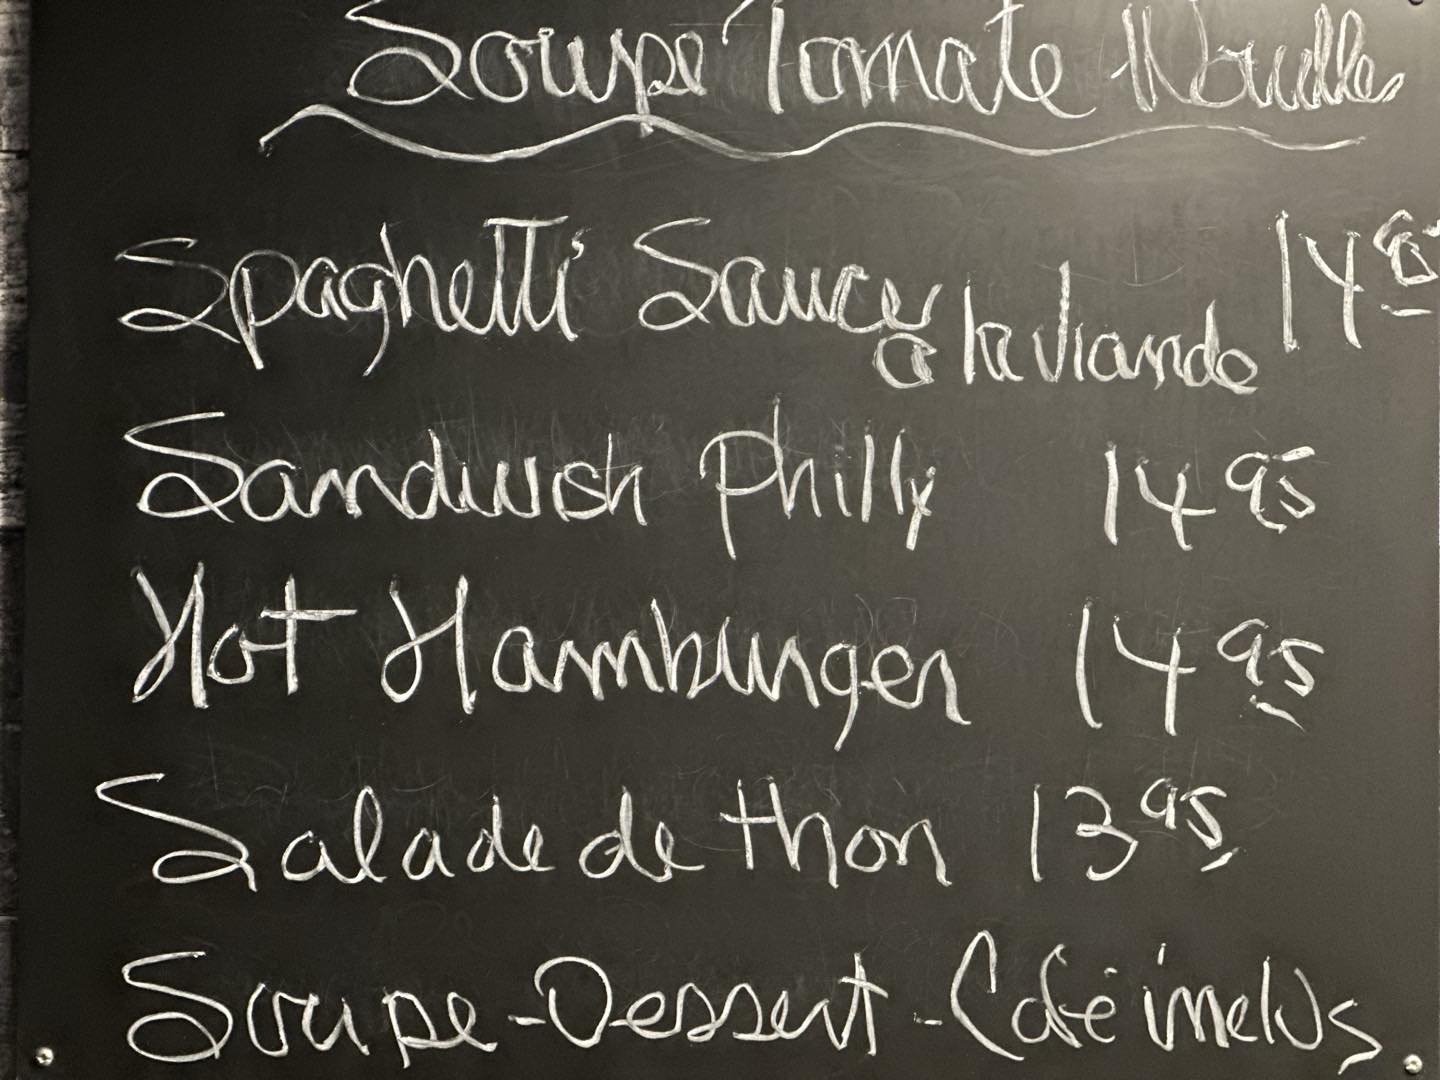 Soupe Tomate Nouilles
Spaghetti Sauce à la viande 14
Sandwish Philly 14 95
Hot Hamburger 14 95
Salade de thon 13 95
Soupe-Dessert-Café inclus